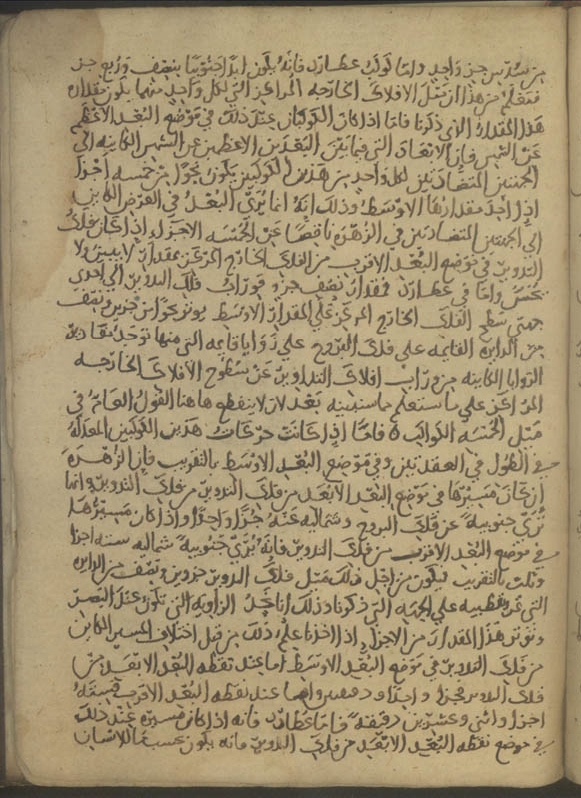 من سدس جزء واحد واما كوكب عطارد فانه يكون ابدا جنوبيا بنصف وربع جزء
فنعلم من هذا ان ميل الافلاك الخارجه المراكز التي لكل واحد منهما يكون بمقدار
هذا المقدار الذي ذكرنا فاما اذا كان الكوكبان عند ذلك في موضع البعد الاعظم
عن الشمس فان الابعاد التي فيما بين البعدين الاعظمين عن الشمس الكاينه الى
الجهتين المتضادتين لكل واحد من هذين الكوكبين يكون نحوا من خمسه اجزا
اذا اخذ مقدارها الاوسط وذلك انه انما يرى البعد في العرض الكاين
الى الجهتين المتضادتين في الزهره ناقصا عن الخمسه الاجزا اذا كان فلك
التدوير في موضع البعد الاقرب من الفلك الخارج المركز بمقدار لا يبين ولا
يحس واما في عطارد فمقدار نصف جزو فوراب فلك التدوير الى احدى
جهتي سطح الفلك الخارج المركز على المقدار الاوسط يوتر نحوا من جزوين ونصف
من الدايره القايمه على فلك البروج على زوايا قايمه التي منها توخذ مقادير
الزوايا الكاينه من وراب افلاك التداوير عن سطوح الافلاك الخارجه
المراكز على ما سنعلم مما سنبينه بعد لان لا ينقطع هاهنا القول العام في
ميل الخمسه الكواكب فاما اذا كانت حركات هذين الكوكبين المعدله
في الطول في العقدتين وفي موضع البعد الاوسط بالتقريب فان الزهره
ان كان مسيرها في موضع البعد الابعد من فلك التدوير من فلك التدوير وانما
ترى جنوبية عن فلك البروج وشماليه عنه جزا واحدا واذا كان مسيرها
في موضع البعد الاقرب من فلك التدوير فانه يرى جنوبية شماليه سته اجزا
وثلث بالتقريب فيكون من اجل ذلك ميل فلك التدوير جزوين ونصف من الدايره
التي تمر بقطبيه على الجهه التي ذكرنا وذلك انا نجد الزاويه التي تكون عند البصر
وتوتر هذا المقدار من الاجزا اذا اخذنا علم ذلك من قبل اختلاف المسير الكاين
من فلك التدوير في موضع البعد الاوسط اما عند نقطه البعد الابعد من
فلك التدوير فجزا واحدا و دقيقتين واما عند نقطه البعد الاقرب فسته
اجزا واثني وعشرين دقيقه فاما عطارد فانه اذا كان مسيره عند ذلك
في موضع نقطه البعد الابعد من فلك التدوير فانه يكون بحسب